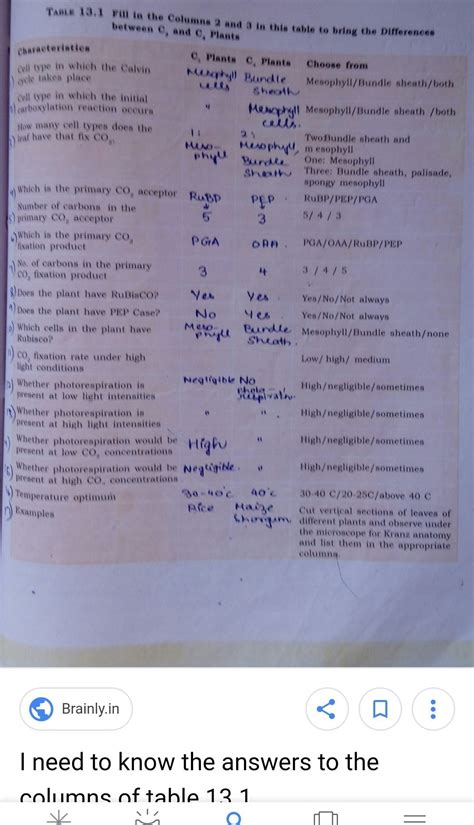 TABLE 13.1 Fill in the Columns 2 and 3 in this table to bring the Differences
between C3 and C4 Plants
Characteristics C3 Plants C4 Plants Choose from
Cell type in which the Calvin Mesophyll Bundle
cycle takes place cells Sheath Mesophyll/Bundle sheath/both
Cell type in which the initial
carboxylation reaction occurs " Mesophyll cells. Mesophyll/Bundle sheath /both
How many cell types does the 1: 2:
leaf have that fix CO2. Meso-phyll Mesophyll, Bundle Sheath Two: Bundle sheath and
mesophyll
One: Mesophyll
Three: Bundle sheath, palisade,
spongy mesophyll
4) Which is the primary CO2 acceptor RuBP PEP. RuBP/PEP/PGA
Number of carbons in the
5) primary CO2 acceptor 5 3 5/ 4 / 3
6) Which is the primary CO2
fixation product PGA OAA. PGA/OAA/RuBP/PEP
7) No. of carbons in the primary
CO2 fixation product 3 4 3 / 4 / 5
8) Does the plant have RuBisCO? Yes Yes. Yes/No/Not always
9) Does the plant have PEP Case? No Yes. Yes/No/Not always
10) Which cells in the plant have Meso-phyll Bundle Sheath. Mesophyll/Bundle sheath/none
Rubisco?
11) CO2 fixation rate under high Low/ high/ medium
light conditions
12) Whether photorespiration is Negligible No High/negligible/sometimes
present at low light intensities
13) Whether photorespiration is " " High/negligible/sometimes
present at high light intensities
Whether photorespiration would be High " High/negligible/sometimes
present at low CO2 concentrations
15) Whether photorespiration would be Negligible. " High/negligible/sometimes
present at high CO2 concentrations
16) Temperature optimum 30-40°C 40°C 30-40 C/20-25C/above 40 C
17) Examples Rice Maize Cut vertical sections of leaves of
Shorgum different plants and observe under
the microscope for Kranz anatomy
and list them in the appropriate
columns.
Brainly.in
I need to know the answers to the
columns of table 13.1